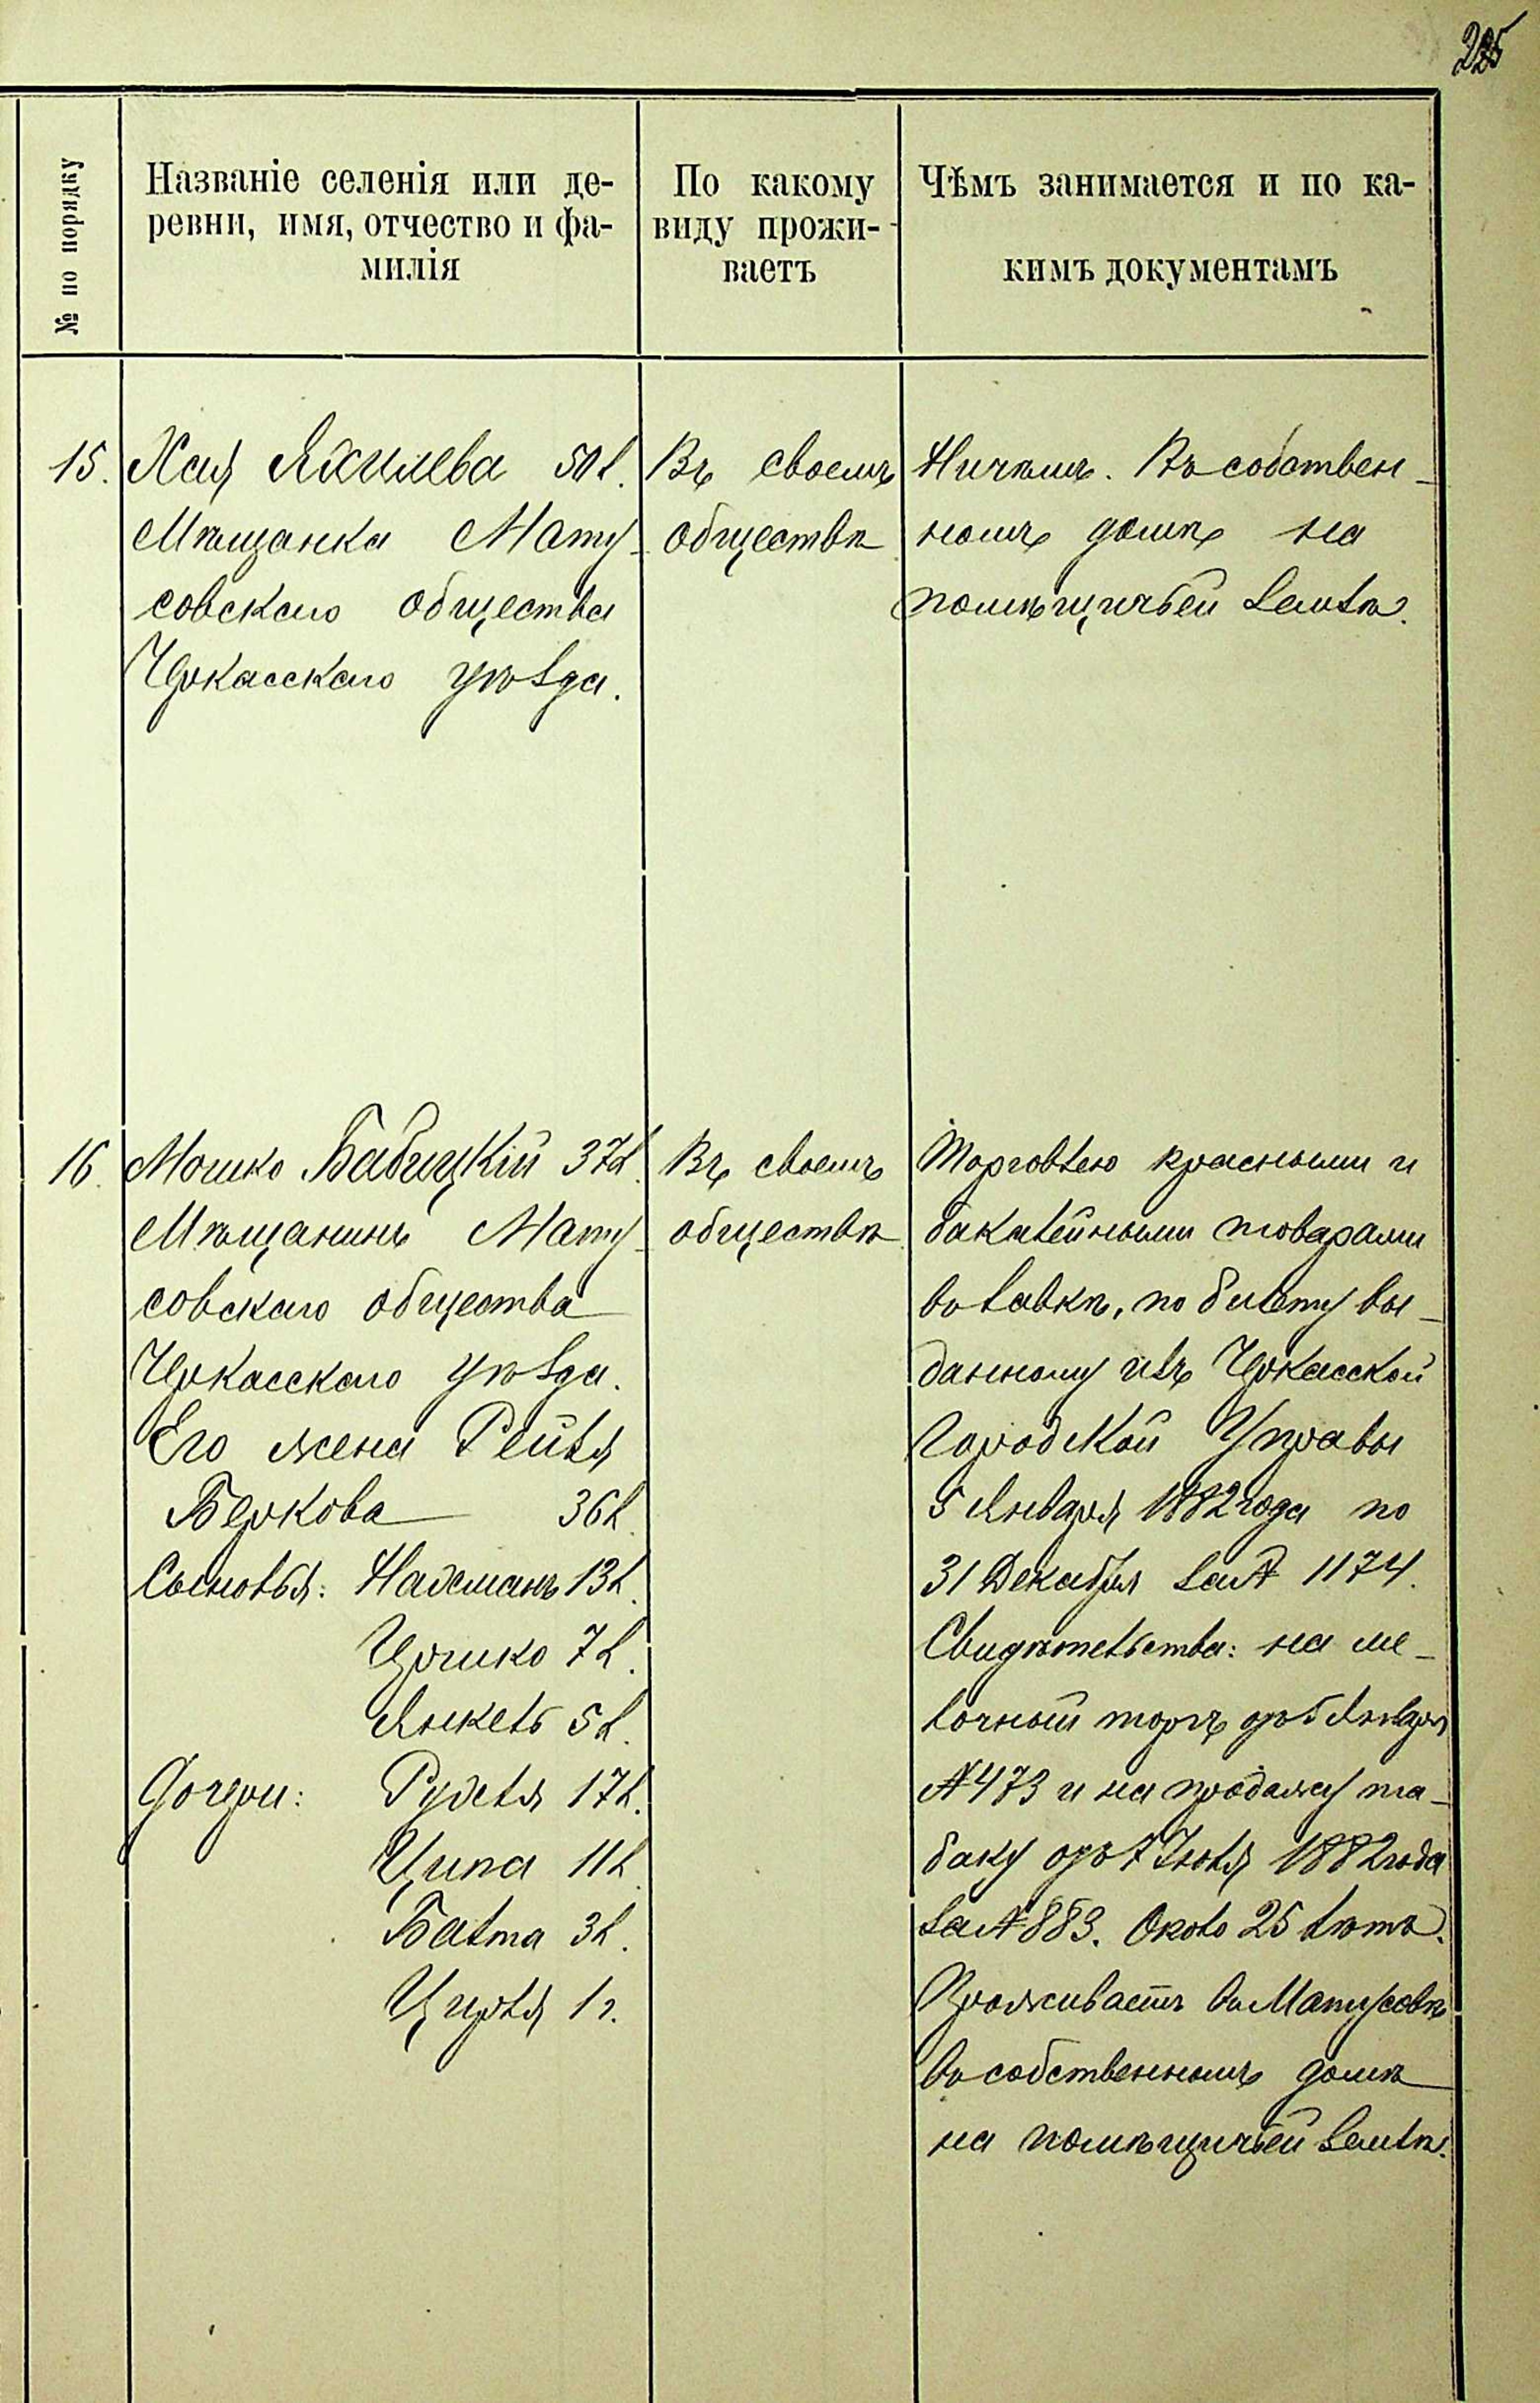 225
№ по порядку
Названіе селенія или де-
ревни, имя, отчество и фа-
милія
По какому
виду прожи-
ваетъ
Чѣмъ занимается и по ка-
кимъ документамъ
15.
Хая Яхилева 50 л.
Мѣщанка Мату-
совскаго общества
Черкасскаго уѣзда.
Въ своемъ
обществѣ
Ничѣмъ. Въ собствен-
номъ домѣ на
помѣщичьей землѣ.
16.
Мошко Бабицкій 37 л.
Мѣщанинъ Мату-
совскаго общества
Черкасскаго уѣзда.
Его жена Рейзя
Беркова 36 л.
Сыновья: Нахманъ 13 л.
Цошко 7 л.
Янкель 5 л.
Дочери: Рухля 17 л.
Ципа 11 л.
Батма 3 л.
Цирля 1 г.
Въ своемъ
обществѣ
Торговлею красными и
бакалейными товарами
въ лавкѣ, по билету вы-
данному изъ Черкасской
Городской Управы
5 Января 1882 года по
31 Декабря за № 1174.
Свидѣтельства: на ме-
лочный торгъ отъ 5 Января
№ 473 и на продажу та-
баку отъ 7 Іюля 1882 года
за № 883. Около 25 лѣтъ.
Проживаетъ въ Матусовѣ
въ собственномъ домѣ
на помѣщичьей землѣ.